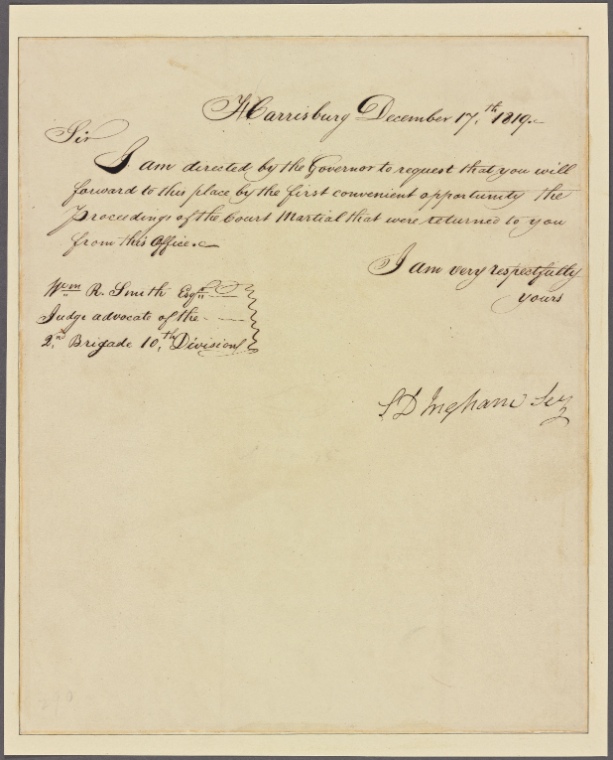 Harrisburg December 17th 1819.
Sir
I am directed by the Governor to request that you will
forward to this place by the first convenient opportunity the
Proceedings of the Court Martial that were returned to you
from this Office.
I am very respectfully
yours
Wm R. Smith Esqr
Judge advocate of the
2d Brigade 10th Division
S D Ingham Secy